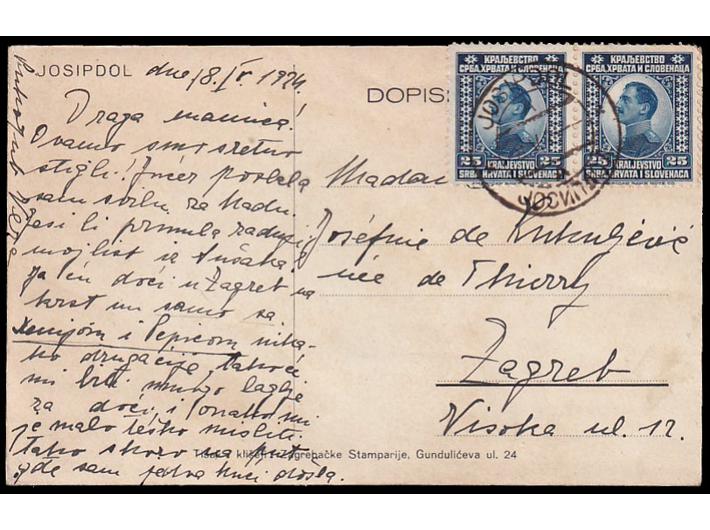 JOSIPDOL dne 18. IV. 1924.
DOPIS
Draga mamica!
Ovamo smo sretno
stigli! Jučer poslala
sam svilu za Nadu.
Jesi li primila
moj list iz Sušaka?
Ja ću doći u Zagreb na
krst no samo sa
Xenijom i Pepicom nika-
ko drugačije, tako će
mi biti mnogo laglje
za doći, i onako mi
je malo teško misliti
tako skoro na put
gde sam jedva kući došla.
КРАЉЕВСТВО
СРБА, ХРВАТА И СЛОВЕНАЦА
25 25
KRALJEVSTVO
SRBA, HRVATA I SLOVENACA
КРАЉЕВСТВО
СРБА, ХРВАТА И СЛОВЕНАЦА
25 25
KRAJEVSTVO
SRBA HRVATA I SLOVENACA
Madam
Joséfine de Kukuljević
née de Thierry
Zagreb
Visoka ul. 12.
Tisak i klišeji Zagrebačke Štamparije, Gundulićeva ul. 24